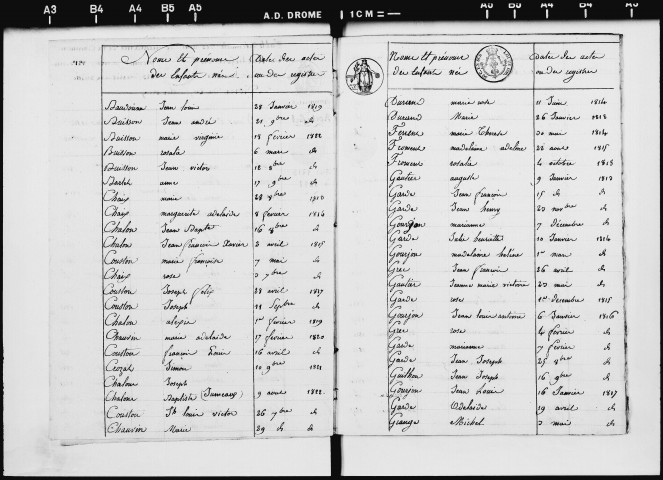 A3 B4 A5 B5 A.D. DROME 1CM A6 B5 A4 B4 A3
Noms et prénoms
des enfants nés
Date des actes
ou des registres
Baudoin Jean louis 28 Janvier 1819
Buisson Jean andré 21 9bre d°
Buisson marie virginie 18 février 1822
Buisson rosala 6 mars d°
Buisson Jean victor 12 8bre d°
Bartet anne 17 9bre d°
Chaix marie 28 8bre 1813
Chaix marguerite adelaide 8 février 1814
Chalon Jean Bapte 16 8bre d°
Chalon Jean françois Xavier 2 avril 1815
Couston marie françoise 7 mai d°
Chaix rose 2 7bre d°
Couston Joseph felix 28 avril 1817
Couston Joseph 11 Septbre d°
Chalon alexis 1er février 1819
Chauvin marie adelaide 17 février 1820
Couston françois Louis 16 avril d°
Crozat Simon 10 9bre 1821
Chalon Joseph
Chalon Baptiste (Jumeaux) 9 aout 1822
Couston Jh louis victor 26 7bre d°
Chauvin Marie 29 d° d°
Noms et prénoms
des enfants nés
Date des actes
ou des registres
Durand marie rose 11 Juin 1814
Durand Marie 26 Janvier 1818
marie Therese 30 mai 1814
Froment madelaine adeline 22 aout 1815
Froment rosala 4 octobre 1818
Gautier auguste 9 Janvier 1813
Garde Jean françois 15 d° d°
Garde Jean henry 23 novbre d°
Gourjon marianne 7 décembre d°
Garde Julie henriette 10 Janvier 1814
Gourjon madelaine helene 1er mars d°
Grec Jean françois 26 avril d°
Gautier Jeanne marie victoire 23 mai d°
Garde rose 1er décembre 1815
Gourjon Jean louis antoine 6 Janvier 1816
Grec rose 4 février d°
Garde marianne 7 février d°
Garde Jean Joseph 25 8bre d°
Guilhon Jean Joseph 16 9bre d°
Gourjon Jean Louis 16 Janvier 1817
Garde Adelaide 29 avril d°
Grange Michel 2 mai d°